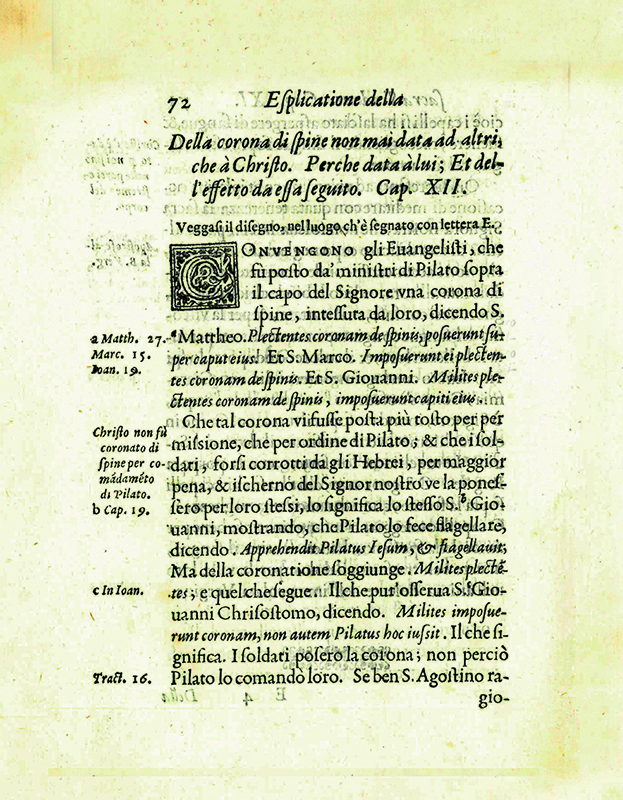 72 Esplicatione della
Della corona di spine non mai data ad altri,
che à Christo. Perche data à lui; Et del-
l'effetto da essa seguito. Cap. XII.
Veggasi il disegno, nel luogo ch'è segnato con lettera E.
CONVENGONO gli Euangelisti, che
fù posto da' ministri di Pilato sopra
il capo del Signore vna corona di
spine, intessuta da loro, dicendo S.
a Matth. 27. ᵃ Mattheo. Plectentes coronam de spinis, posuerunt su-
Marc. 15. per caput eius. Et S. Marco. Imposuerunt ei plecten-
Ioan. 19. tes coronam de spinis. Et S. Giouanni. Milites ple-
ctentes coronam de spinis, imposuerunt capiti eius.
Che tal corona vi fusse posta più tosto per per
Christo non fù missione, che per ordine di Pilato; & che i sol-
coronato di dati, forsi corrotti da gli Hebrei, per maggior
spine per co- pena, & ischerno del Signor nostro ve la pones-
mādamēto sero per loro stessi, lo significa lo stesso S.ᵇ Gio-
di Pilato.
b Cap. 19. uanni, mostrando, che Pilato lo fece flagellare,
dicendo. Apprehendit Pilatus Iesum, & flagellauit;
Ma della coronatione soggiunge. Milites plectē-
c In Ioan. tes; e quel che segue. Il che pur' osserua S.ᶜ Gio-
uanni Chrisostomo, dicendo. Milites imposue-
runt coronam, non autem Pilatus hoc iussit. Il che si-
gnifica. I soldati posero la corona; non perciò
Tract. 16. Pilato lo comandò loro. Se ben S. Agostino ra-
gio-